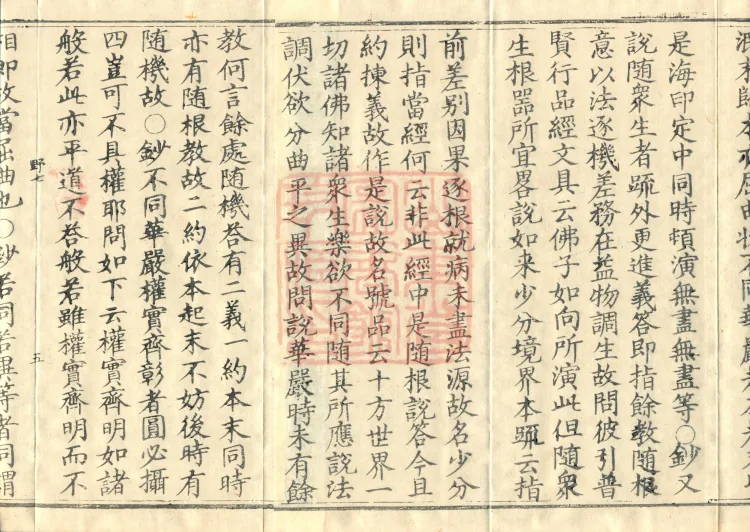 是海印定中同時頓演無盡無盡等〇鈔又
說隨衆生者䟽外更進義答即指餘教隨根
意以法逐機差務在益物調生故問彼引普
賢行品經文具云佛子如向所演此但隨衆
生根器所宜畧說如来少分境界本䟽云指
前差别因果逐根就病未盡法源故名少分
則指當經何云非此經中是隨根說答今且
約揀義故作是說故名號品云十方世界一
切諸佛知諸衆生樂欲不同隨其所應說法
調伏欲分曲平之異故問說華嚴時未有餘
教何言餘處隨機荅有二義一約本末同時
亦有随根教故二約依本起末不妨後時有
随機故〇鈔不同華嚴權實齊彰者圓必攝
四豈可不具權耶問如下云權實齊明如諸
般若此亦平道不荅般若雖權實齊明而不
野七
五
相即故當屈曲也〇鈔若同若異等者同謂